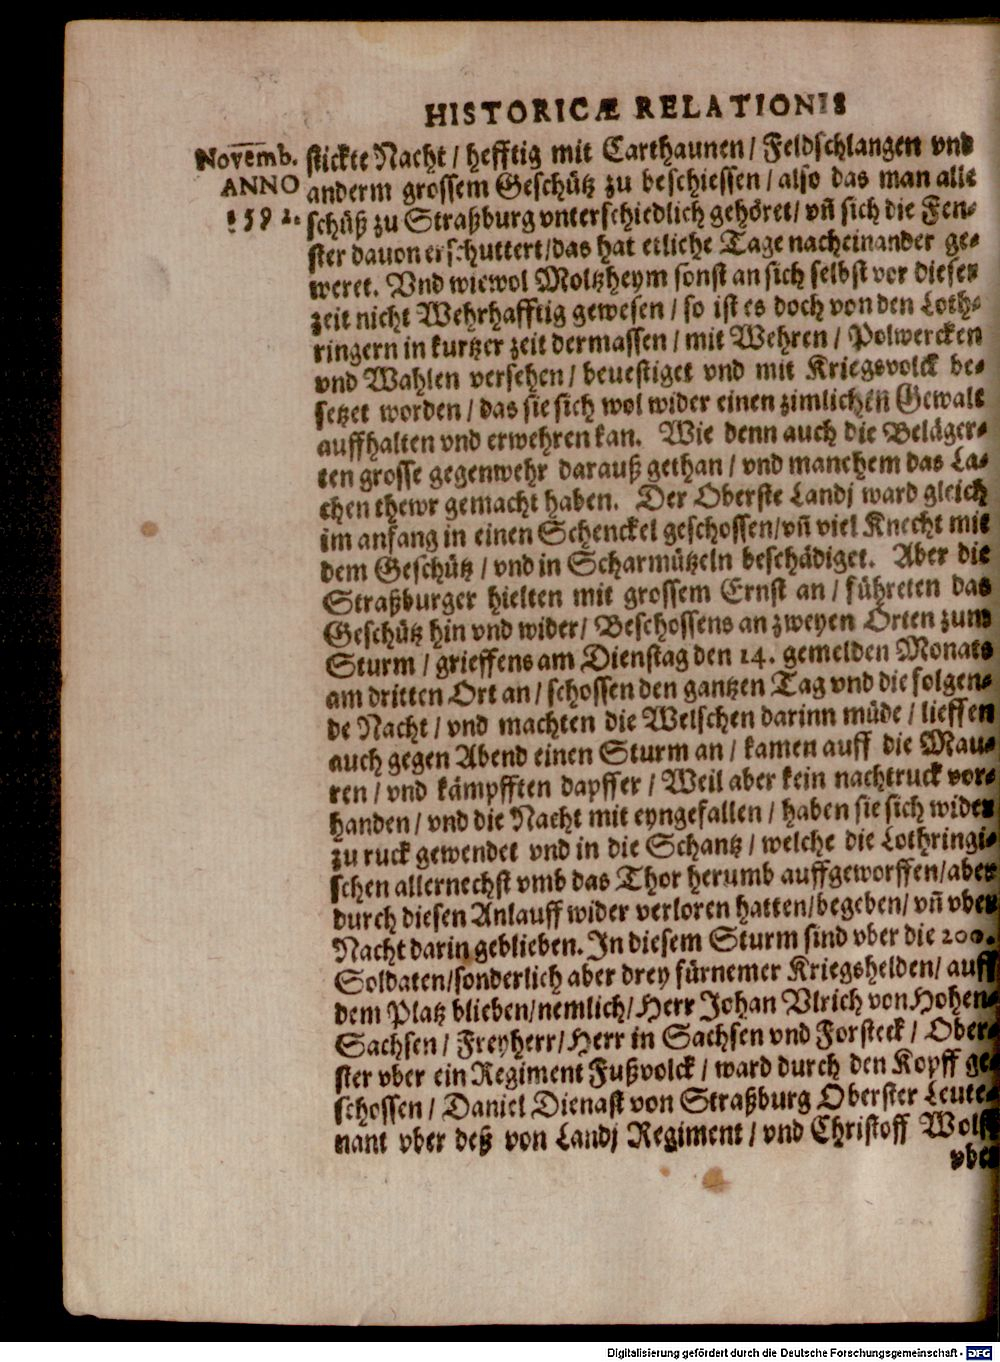 HISTORICÆ RELATIONIS
Novēmb.
ANNO
1592.
stickte Nacht / hefftig mit Carthaunen / Feldschlangen vnd
anderm grossem Geschütz zu beschiessen / also das man alle
schüß zu Straßburg vnterschiedlich gehöret / vñ sich die Fen-
ster dauon erschuttert / das hat etliche Tage nacheinander ge-
weret. Vnd wiewol Moltzheym sonst an sich selbst vor dieser
zeit nicht Wehrhafftig gewesen / so ist es doch von den Loth-
ringern in kurtzer zeit dermassen / mit Wehren / Polwercken
vnd Wahlen versehen / beuestiget vnd mit Kriegsvolck be-
setzet worden / das sie sich wol wider einen zimlichen Gewalt
auffhalten vnd erwehren kan. Wie denn auch die Beläger-
ten grosse gegenwehr darauß gethan / vnd manchem das La-
chen thewr gemacht haben. Der Oberste Landj ward gleich
im anfang in einen Schenckel geschossen / vñ viel Knecht mit
dem Geschütz / vnd in Scharmützeln beschädiget. Aber die
Straßburger hielten mit grossem Ernst an / führeten das
Geschütz hin vnd wider / Beschossens an zweyen Orten zum
Sturm / grieffens am Dienstag den 14. gemelden Monats
am dritten Ort an / schossen den gantzen Tag vnd die folgen-
de Nacht / vnd machten die Welschen darinn müde / lieffen
auch gegen Abend einen Sturm an / kamen auff die Mau-
ren / vnd kämpfften dapffer / Weil aber kein nachtruck vor-
handen / vnd die Nacht mit eyngefallen / haben sie sich wider
zu ruck gewendet vnd in die Schantz / welche die Lothringi-
schen allernechst vmb das Thor herumb auffgeworffen / aber
durch diesen Anlauff wider verloren hatten / begeben / vñ vber
Nacht darin geblieben. In diesem Sturm sind vber die 200.
Soldaten / sonderlich aber drey fürnemer Kriegshelden / auff
dem Platz blieben / nemlich / Herr Johan Vlrich von Hohen-
Sachsen / Freyherr / Herr in Sachsen vnd Forsteck / Ober-
ster vber ein Regiment Fußvolck / ward durch den Kopff ge-
schossen / Daniel Dienast von Straßburg Oberster Leute-
nant vber deß von Landj Regiment / vnd Christoff Wolff
vber
Digitalisierung gefördert durch die Deutsche Forschungsgemeinschaft - DFG